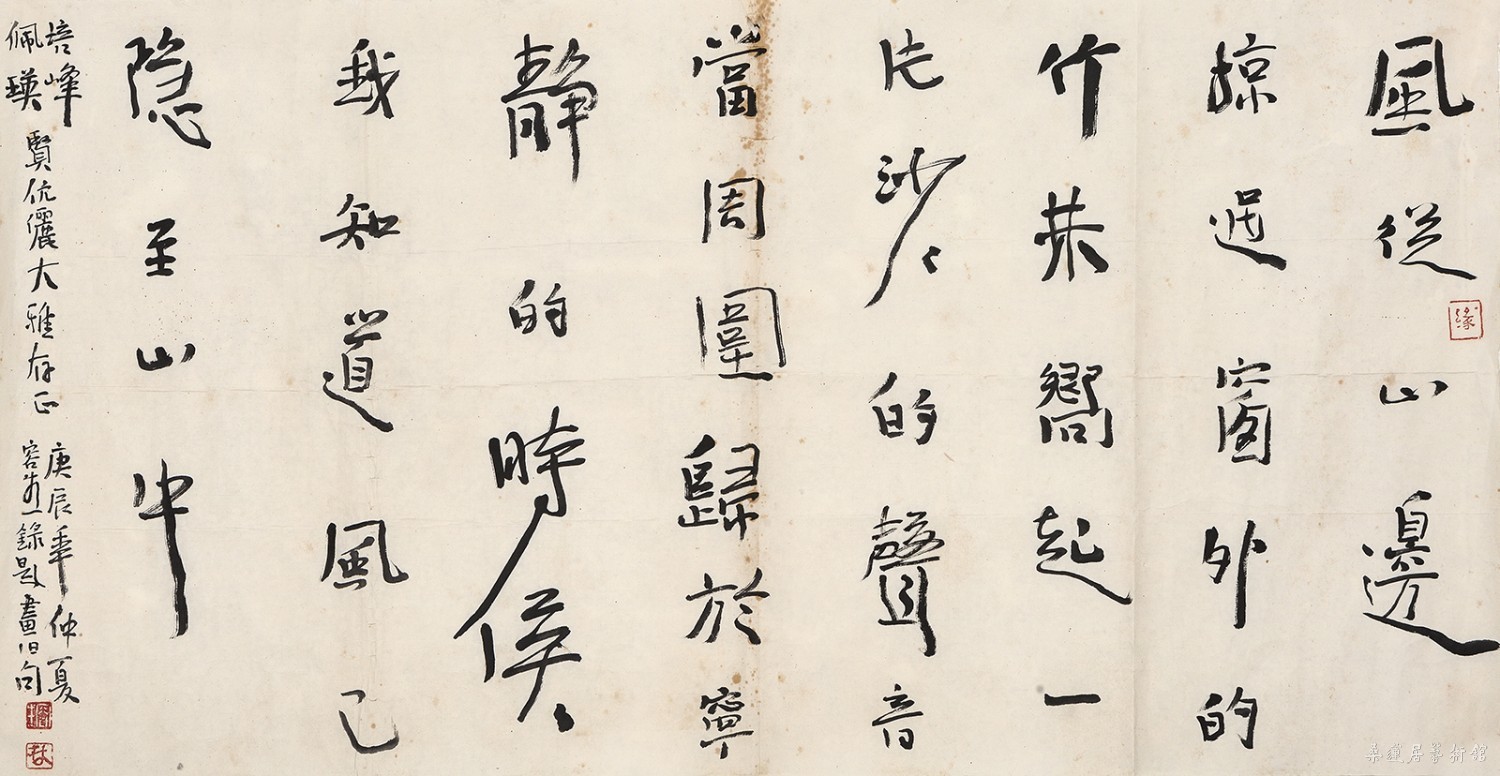 風從山邊
掠過窗外的
竹林嚮起一
片沙〻的聲音
當周圍歸於寧
靜的時候
我知道風已
隐至山中
培峰
佩瑛
賢伉儷大雅存正
庚辰年仲夏
容錄題畫旧句
缘
居藝術館